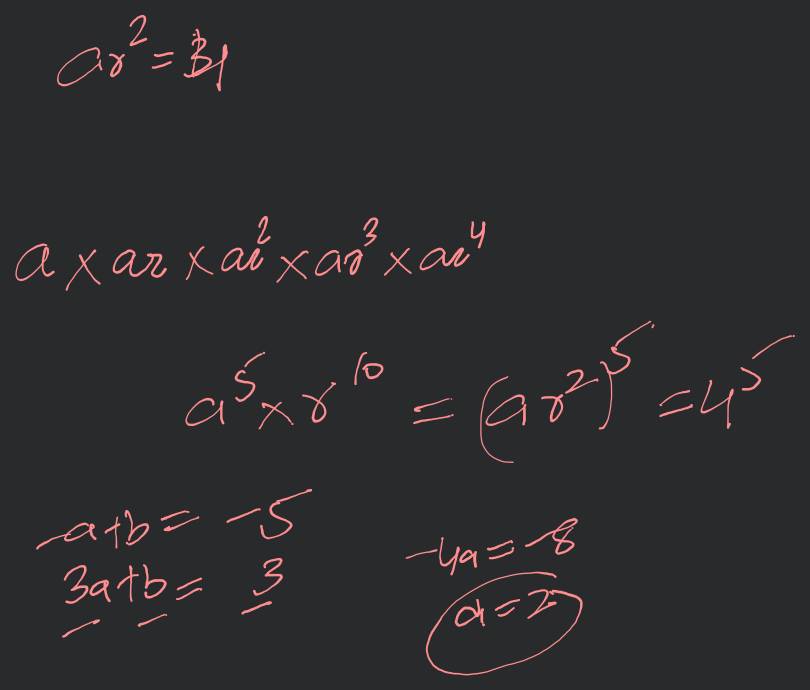 ar² =
a × ar × ar² × ar³ × ar⁴
a⁵ × r¹⁰ = (ar²)⁵ = 4⁵
-a+b = -5
3a+b = 3
-4a = -8
a = 2